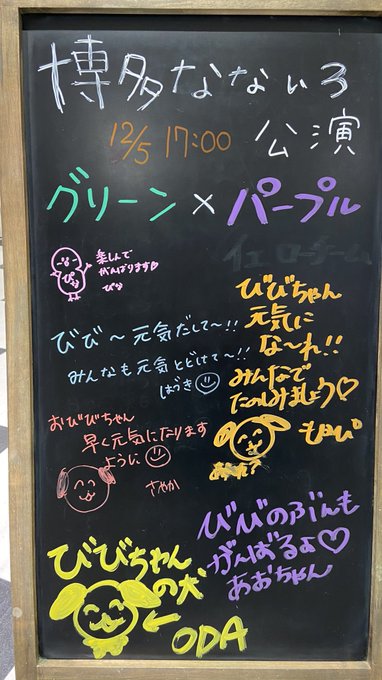 博多なないろ
12/5 17:00 公演
グリーン×パープル
楽しんで
がんばります♡
ぴな
びび〜元気だして〜!!
みんなも元気とどけて〜!!
はづき
おびびちゃん
早く元気になります
ように
さやか
びびちゃん
元気に
な〜れ!!
みんなで
たのしみましょう♡
びびちゃん
の犬
ODA
びびのぶんも
がんばるよ♡
あおちゃん